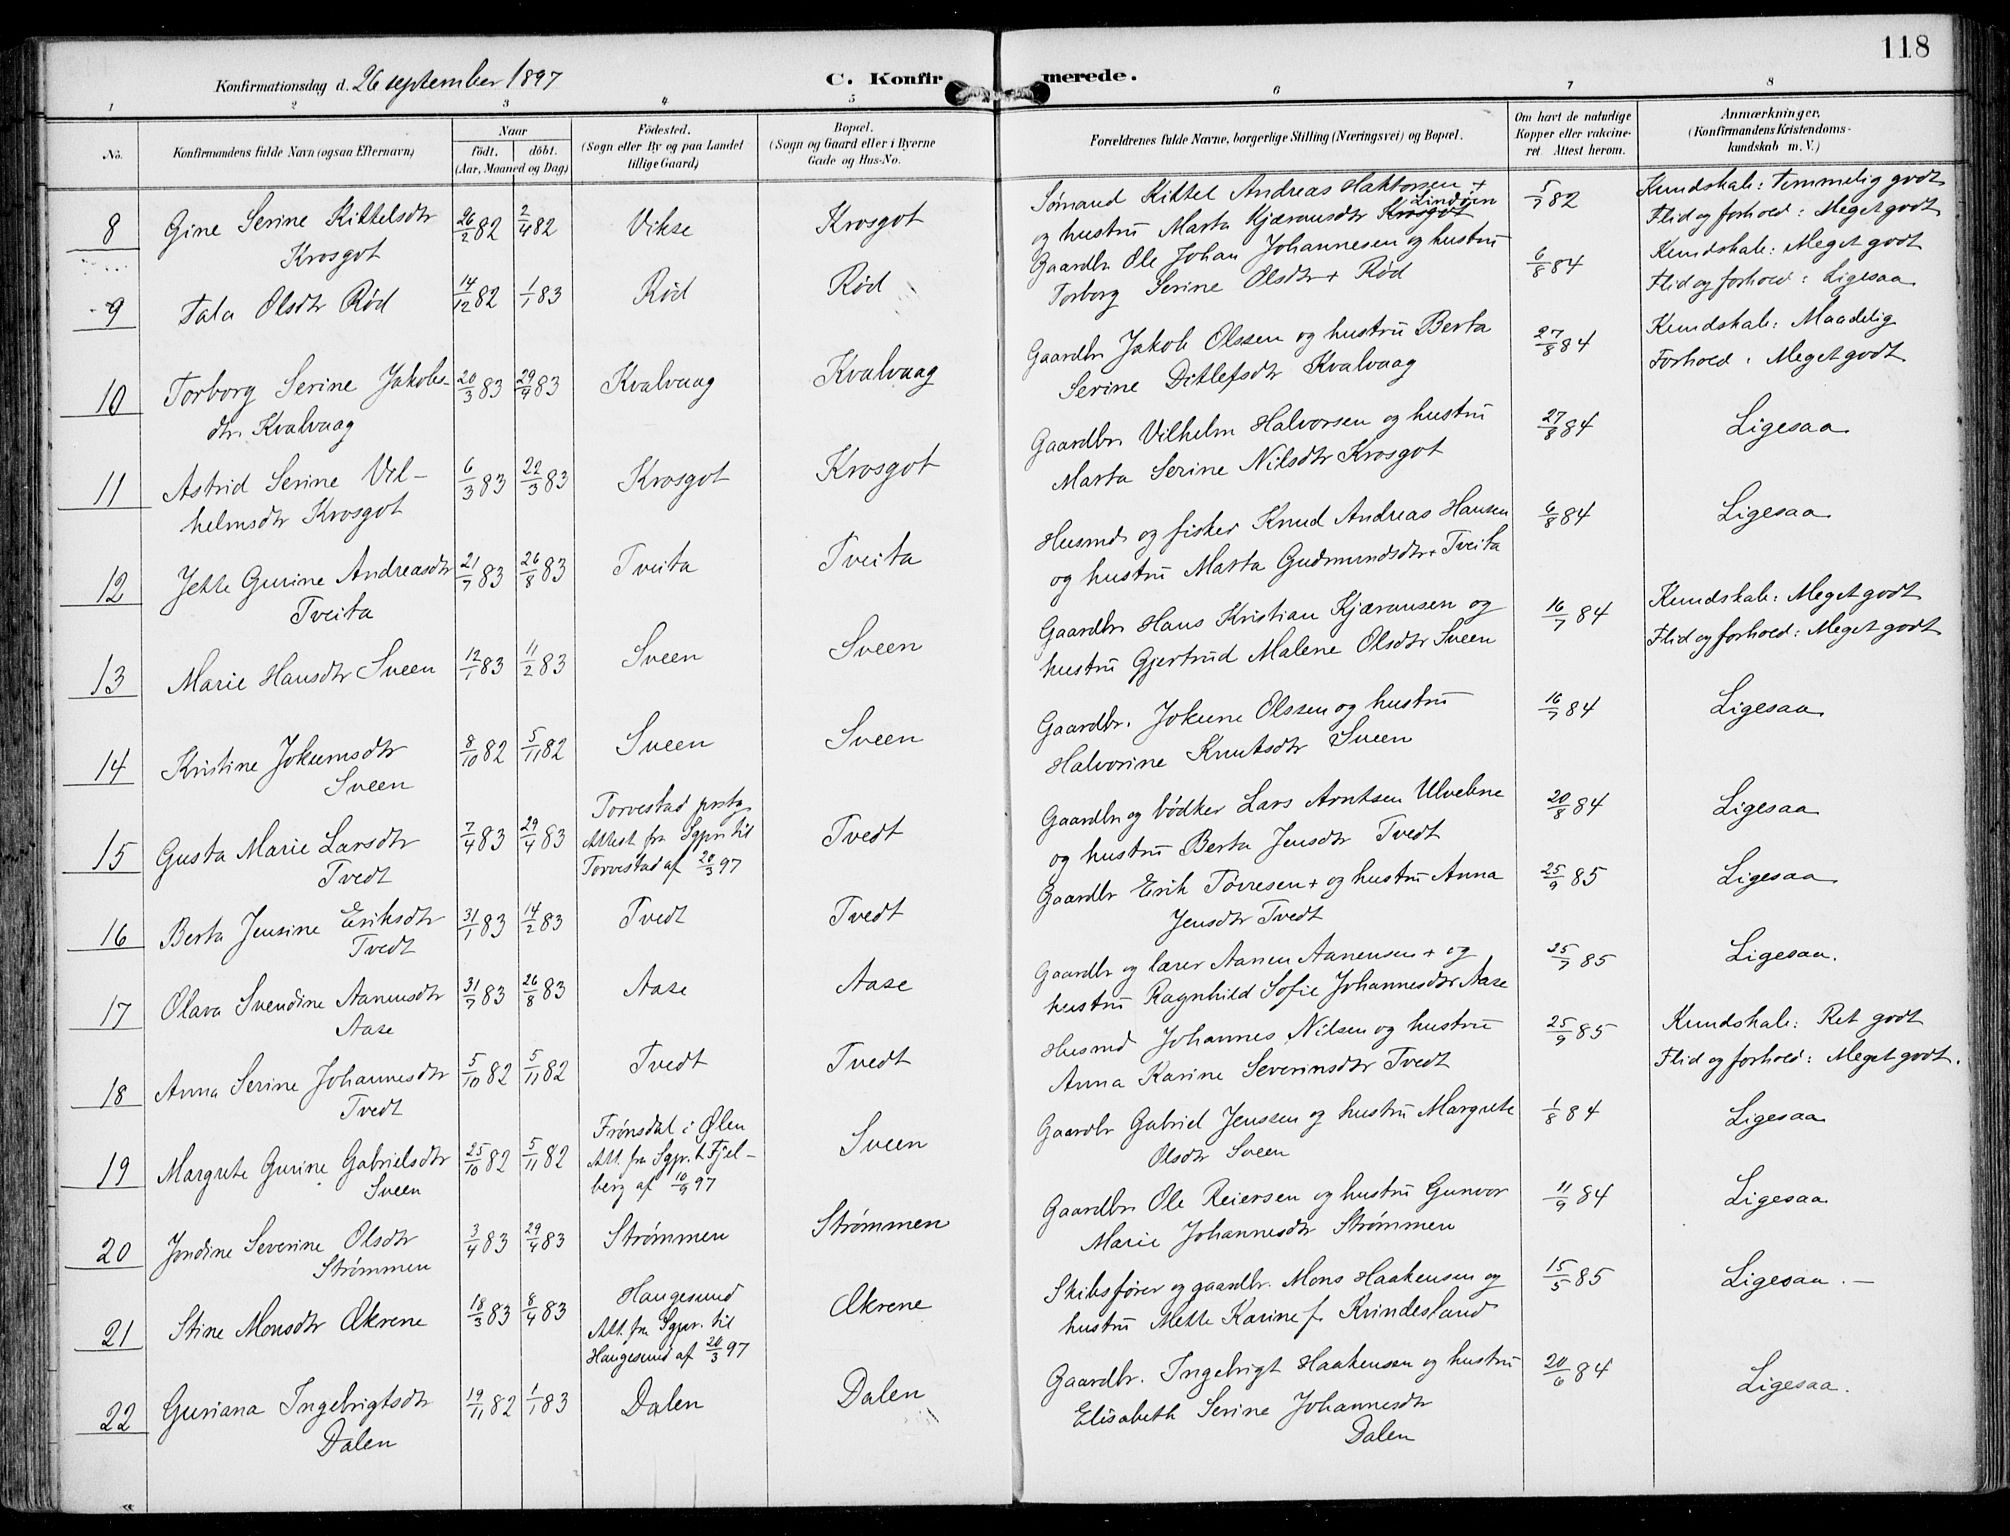 118
Konfirmationsdag d. 26 september 1897
C. Konfirmerede.
1 2 3 4 5 6 7 8
No.
Konfirmandens fulde Navn (ogsaa Efternavn)
Naar
født. døbt.
(Aar, Maaned og Dag)
Fødested.
(Sogn eller By og paa Landet
tillige Gaard.)
Bopæl.
(Sogn og Gaard eller i Byerne
Gade og Hus-No.
Forældrenes fulde Navne, borgerlige Stilling (Næringsvei) og Bopæl.
Om havt de naturlige
Kopper eller vakcine-
ret. Attest herom.
Anmærkninger,
(Konfirmandens Kristendoms-
kundskab m. V.)
8 Gine Serine Kittelsdtr 26/2 82 2/4 82 Vikse Krosgot
Krosgot
Sømand Kittel Andreas Haktorsen +
og hustru Marta Kjæransdtr Krosgot Lindøen
5/7 82
Kundskab: Temmelig godt
Flid og forhold: Meget godt
9 Tala Olsdtr Rød 14/12 82 1/1 83 Rød Rød
Gaardbr. Ole Johan Johannesen og hustru
Torborg Serine Olsdtr + Rød
6/8 84
Kundskab: Meget godt
Flid og forhold: Ligesaa
10 Torborg Serine Jakobs- 20/3 83 29/4 83 Kvalvaag Kvalvaag
dtr. Kvalvaag
Gaardbr Jakob Olssen og hustru Berta
Serine Ditlefsdtr Kvalvaag
27/8 84
Kundskab: Maadelig
Forhold: Meget godt
11 Astrid Serine Vil- 6/3 83 22/3 83 Krosgot Krosgot
helmsdtr Krosgot
Gaardbr. Vilhelm Halvorsen og hustru
Marta Serine Nilsdtr Krosgot
27/8 84
Ligesaa
12 Jette Gurine Andreasdtr 21/7 83 26/8 83 Tveita Tveita
Tveita
Husmd. og fisker Knud Andreas Hansen
og hustru Marta Gudmundsdtr + Tveita
6/8 84
Ligesaa
13 Marie Hansdtr Sveen 12/1 83 11/2 83 Sveen Sveen
Gaardbr. Hans Kristian Kjæransen og
hustru Gjertrud Malene Olsdtr Sveen
16/7 84
Kundskab: Meget godt
Flid og forhold: Meget godt
14 Kristine Jokumsdtr 8/10 82 5/11 82 Sveen Sveen
Sveen
Gaardbr. Jokum Olssen og hustru
Halvorine Knutsdtr Sveen
16/7 84
Ligesaa
15 Gusta Marie Larsdtr 7/4 83 29/4 83 Torvestad prstg Tvedt
Tvedt
Attest fra Sgpr. til
Torvestad af 20/3 97
Gaardbr og bødker Lars Arntsen Ulvebne
og hustru Berta Jensdtr Tvedt
20/8 84
Ligesaa
16 Berta Jensine Eriksdtr 31/1 83 14/2 83 Tvedt Tvedt
Tvedt
Gaardbr Erik Torresen + og hustru Anna
Jensdtr Tvedt
25/9 85
Ligesaa
17 Olava Svendine Aanensdtr 31/7 83 26/8 83 Aase Aase
Aase
Gaardbr og lærer Aanen Aanensen + og
hustru Ragnhild Sofie Johannesdtr Aase
25/7 85
Ligesaa.
18 Anna Serine Johannesdtr 5/10 82 5/11 82 Tvedt Tvedt
Tvedt
Husmd Johannes Nilsen og hustru
Anna Karine Severinsdtr Tvedt
25/9 85
Kundskab: Ret godt
Flid og forhold: Meget godt.
19 Margrete Gurine Gabrielsdtr 25/10 82 5/11 82 Frønsdal i Ølen Sveen
Sveen
Att. fra Sgpr. t. Fjel-
berg af 10/9 97
Gaardbr Gabriel Jenssen og hustru Margrete
Olsdtr Sveen
1/8 84
Ligesaa
20 Jondine Severine Olsdtr 3/4 83 29/4 83 Strømmen Strømmen
Strømmen
Gaardbr. Ole Reiersen og hustru Gunvor
Marie Johannesdtr Strømmen
11/9 84
Ligesaa
21 Stine Monsdtr Økrene 18/3 83 8/4 83 Haugesund Økrene
Att. fra Sgpr. til
Haugesund af 20/3 97
Skibsfører og gaardbr. Mons Haakensen og
hustru Mette Karine f. Kvindesland
15/5 85
Ligesaa. —
22 Guriana Ingebrigtsdtr 19/11 82 1/1 83 Dalen Dalen
Dalen
Gaardbr. Ingebrigt Haakensen og hustru
Elisabeth Serine Johannesdtr
Dalen
20/6 84
Ligesaa.